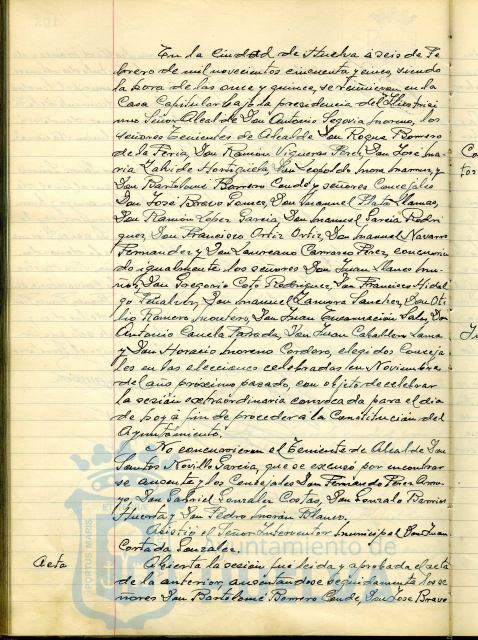 En la ciudad de Huelva á seis de Fe
brero de mil novecientos cincuenta y cinco, siendo
la hora de las once y quince, se reunieron en la
Casa Capitular bajo la presidencia del Ilustrísi
mo Señor Alcalde Don Antonio Segovia Moreno, los
señores Tenientes de Alcalde Don Roque Borrero
de la Feria, Don Ramón Vigueras Pérez, Don José Ma
ria Don Leopoldo y
Don Bartolomé Borrero Conde y señores Concejales
Don José Bravo Ponce, Don Manuel Plata Llamas,
Don Ramón López Garcia, Don Manuel Garcia Rodri
guez, Don Francisco Ortiz Ortiz, Don Manuel Navarro
Fernandez y Don Laureano Carrasco Pérez, concurrien
do igualmente los señores Don Juan Llanes Mu
ñoz, Don Gregorio Rodriguez, Don Francisco Hidal
go Peñalver, Don Manuel Zamora Sanchez, Don Oti
lio Romero Montero, Don Juan Encarnación Don
Antonio Canela Don Juan Caballero
y Don Horacio Moreno Cordero, elegidos Conceja
les en las elecciones celebradas en Noviembre
del año próximo pasado, con objeto de celebrar
la sesión extraordinaria convocada para el dia
de hoy á fin de proceder á la Constitución del
Ayuntamiento.
No concurrieron el Teniente de Alcalde Don
Santos Novillo Garcia, que se excusó por encontrar
se ausente y los Concejales Don Fernando Pérez Orro
yo, Don Gabriel Gonzalez Costas, Don Gonzalo Barrios
Huerta y Don Pedro Morán Blanco.
Asistió el Señor Interventor municipal Don Juan
Cortada Gonzalez.
Ayuntamiento de
PORTUS MARIS
Acta
Abierta la sesión fué leida y aprobada el acta
de la anterior, ausentandose seguidamente los se
ñores Don Bartolomé Borrero Conde, Don José Bravo